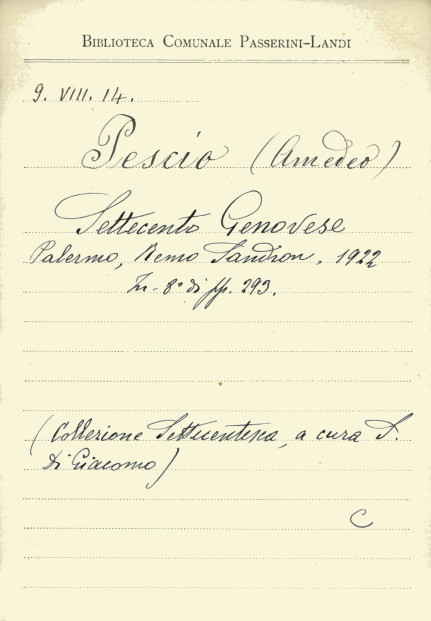 BIBLIOTECA COMUNALE PASSERINI-LANDI
9. VIII. 14.
Pescio (Amedeo)
Settecento Genovese
Palermo, Remo Sandron, 1922
In-8° di pp. 293.
(Collezione Settecentesca, a cura S.
Di Giacomo)
C